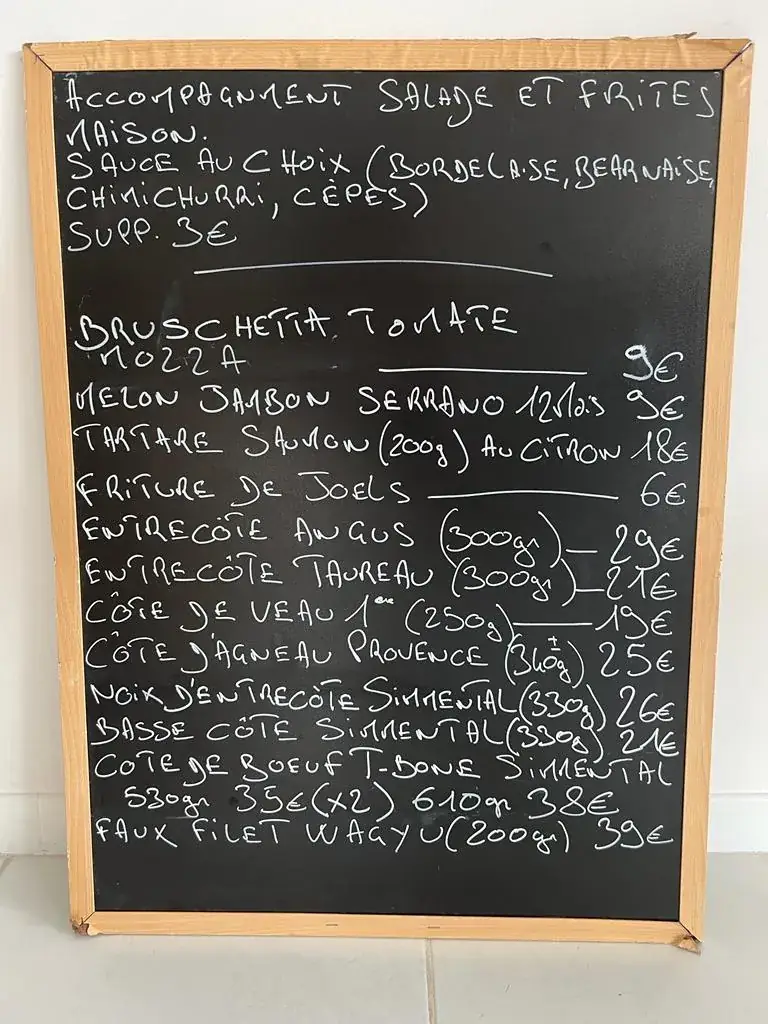 ACCOMPAGNMENT SALADE ET FRITES
MAISON.
SAUCE AU CHOIX (BORDELAISE, BEARNAISE,
CHIMICHURRI, CÈPES)
SUPP. 3€
BRUSCHETTA TOMATE
MOZZA 9€
MELON JAMBON SERRANO 12 Mois 9€
TARTARE SAUMON (200g) AU CITRON 18€
FRITURE DE JOELS 6€
ENTRECÔTE ANGUS (300gr) 29€
ENTRECÔTE TAUREAU (300gr) 21€
CÔTE DE VEAU 1ère (250g) 19€
CÔTE D'AGNEAU PROVENCE (340g±) 25€
NOIX D'ENTRECÔTE SIMMENTAL (330g) 26€
BASSE CÔTE SIMMENTAL (330g) 21€
COTE DE BOEUF T-BONE SIMMENTAL
530gr 35€ (x2) 610gr 38€
FAUX FILET WAGYU (200gr) 39€